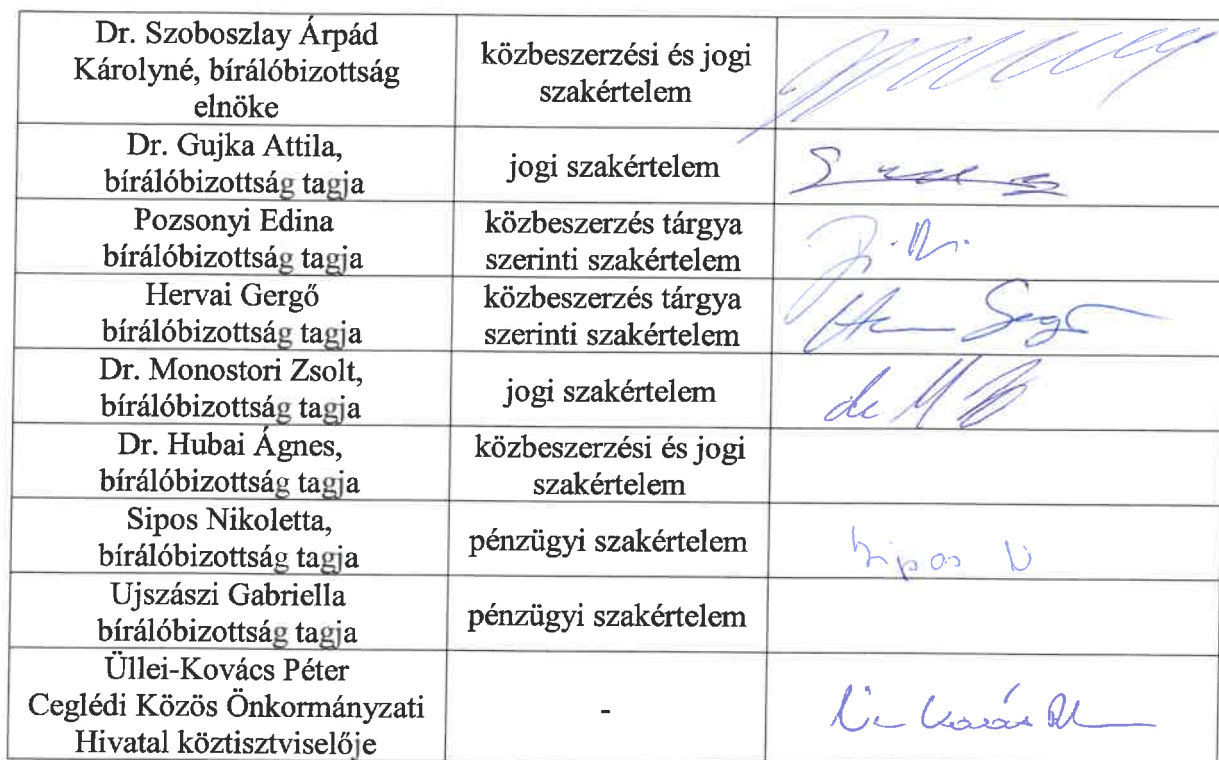 Dr. Szoboszlay Árpád
Károlyné, bírálóbizottság
elnöke
közbeszerzési és jogi
szakértelem
Dr. Gujka Attila,
bírálóbizottság tagja
jogi szakértelem
Pozsonyi Edina
bírálóbizottság tagja
közbeszerzés tárgya
szerinti szakértelem
Hervai Gergő
bírálóbizottság tagja
közbeszerzés tárgya
szerinti szakértelem
Dr. Monostori Zsolt,
bírálóbizottság tagja
jogi szakértelem
Dr. Hubai Ágnes,
bírálóbizottság tagja
közbeszerzési és jogi
szakértelem
Sipos Nikoletta,
bírálóbizottság tagja
pénzügyi szakértelem
Sipos N
Ujszászi Gabriella
bírálóbizottság tagja
pénzügyi szakértelem
Üllei-Kovács Péter
Ceglédi Közös Önkormányzati
Hivatal köztisztviselője
-